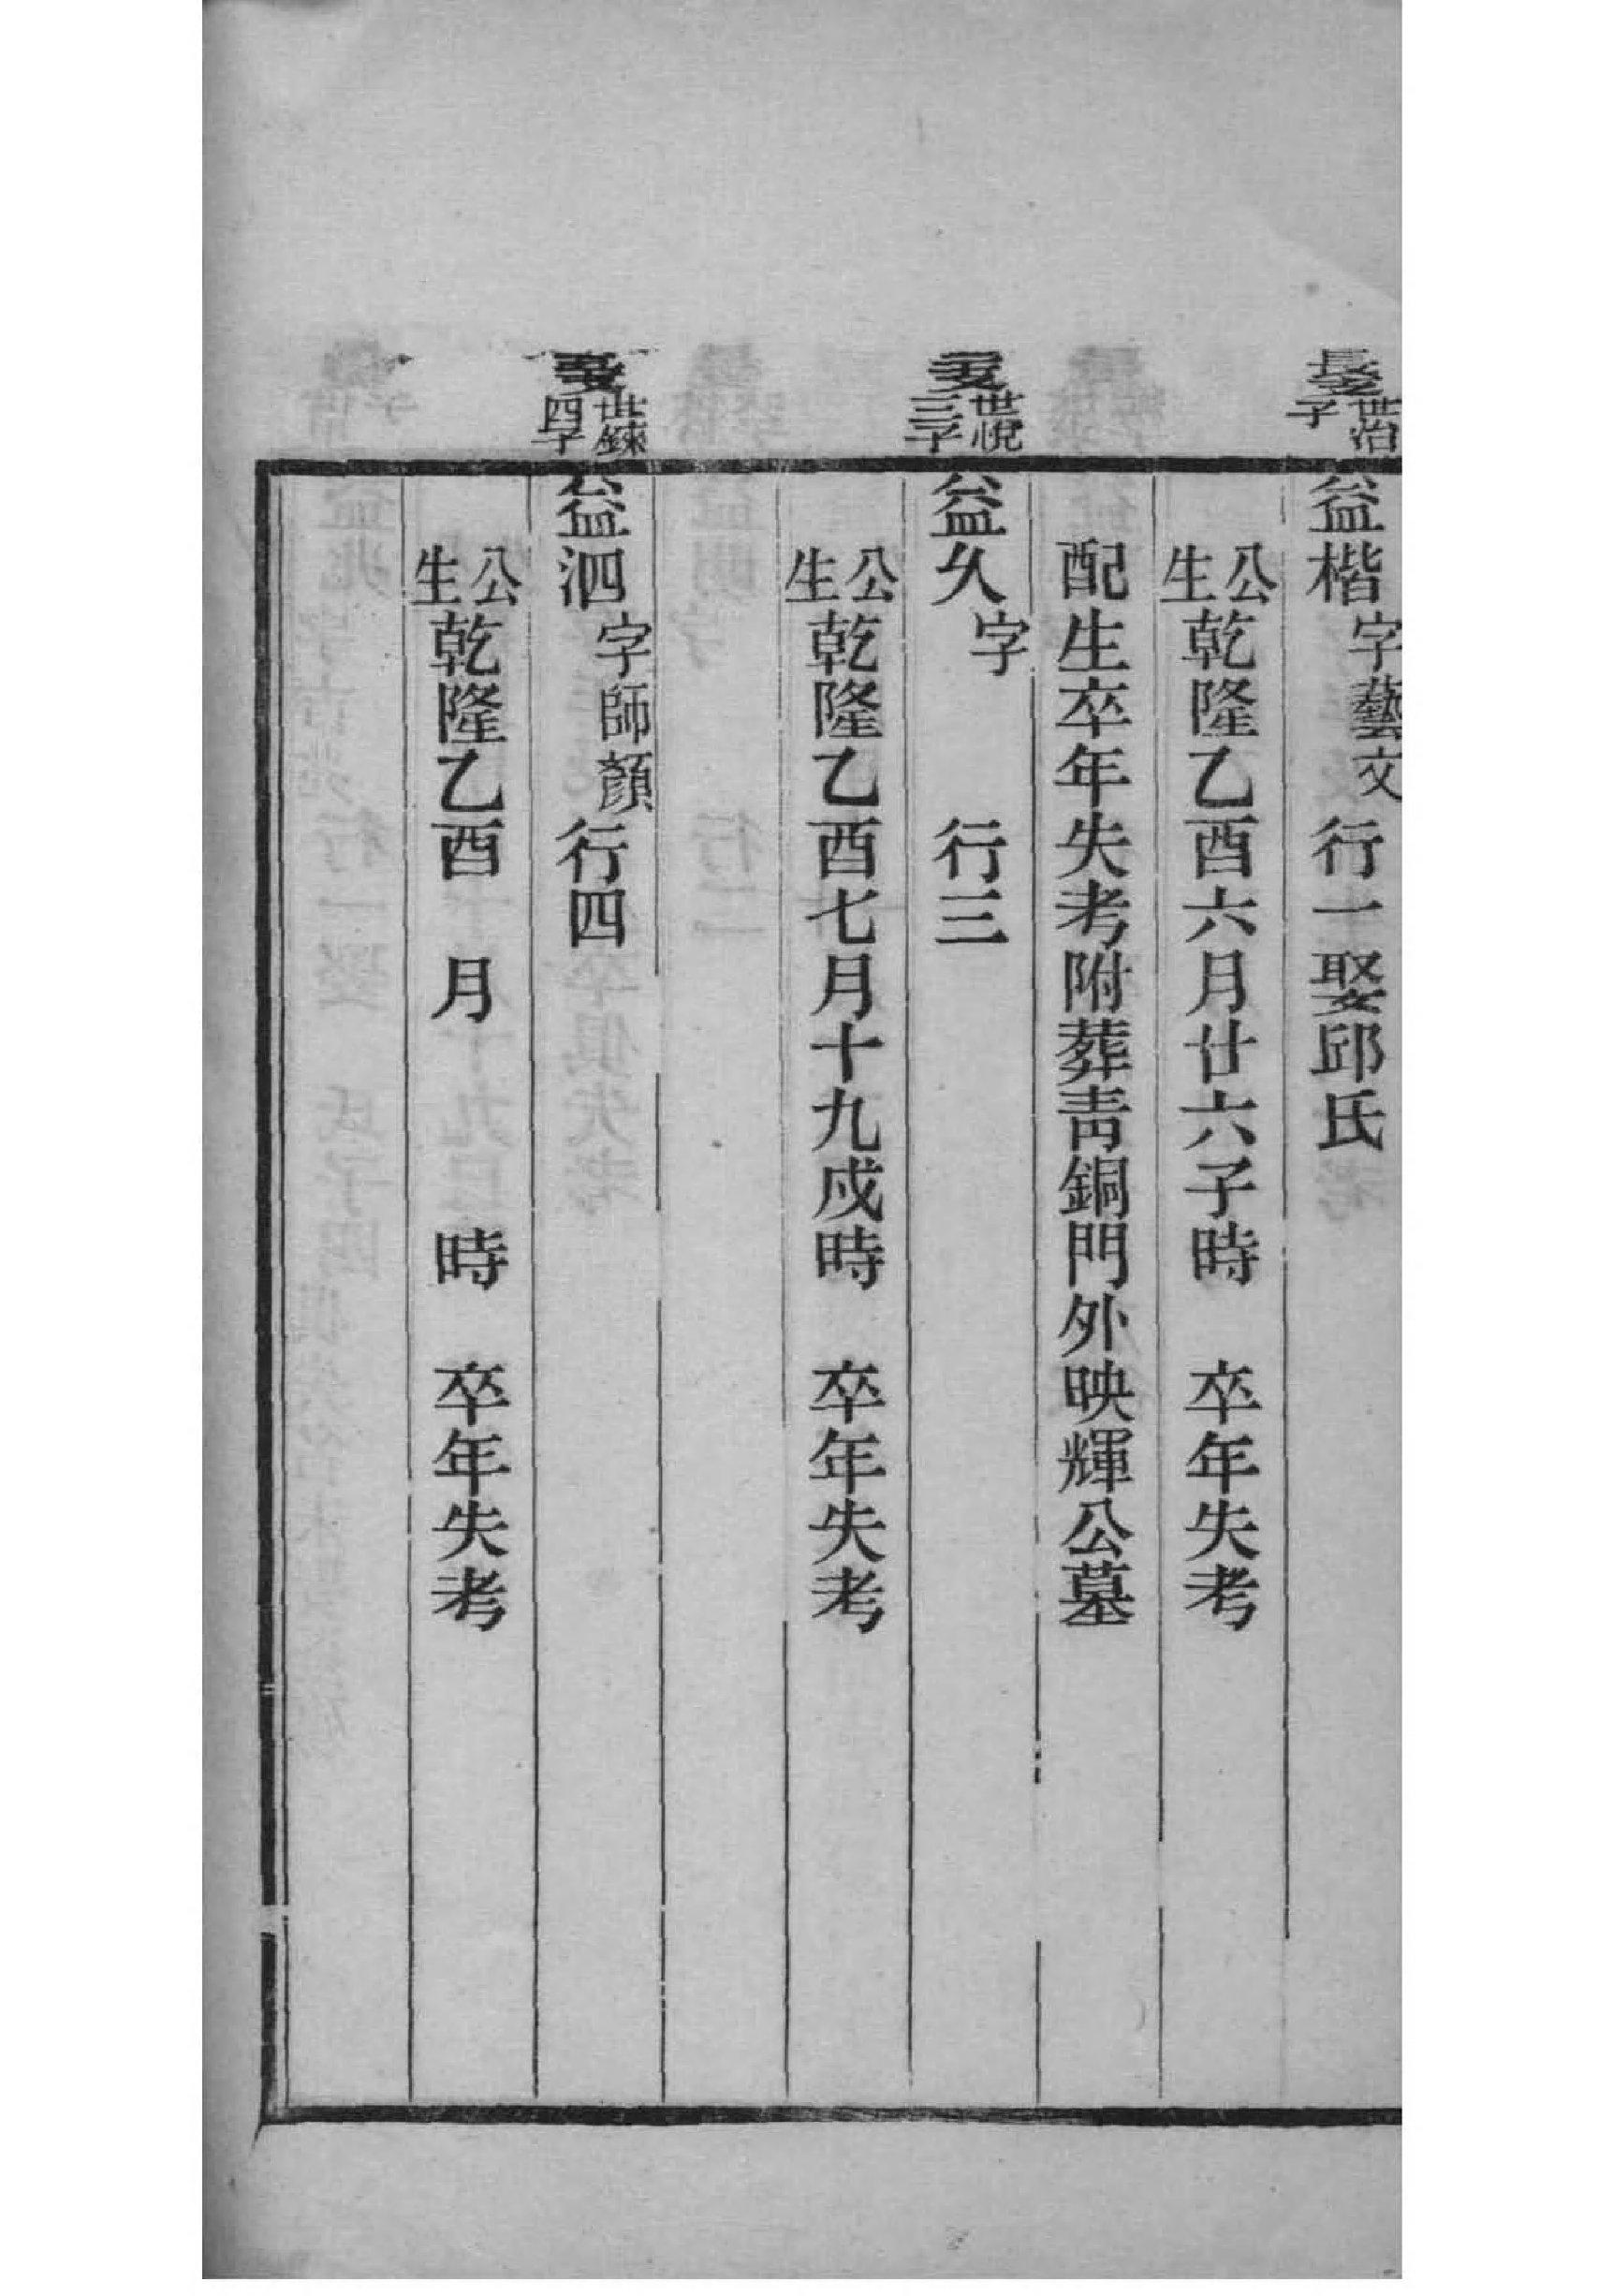 世治
子
公益楷字藝文行一娶邱氏
公生乾隆乙酉六月廿六子時 卒年失考
配生卒年失考附葬靑銅門外映輝公墓
世悅
三子
公益久字 行三
公生乾隆乙酉七月十九戌時 卒年失考
世鍊
四子
公益泗字師顏行四
公生乾隆乙酉 月 時 卒年失考